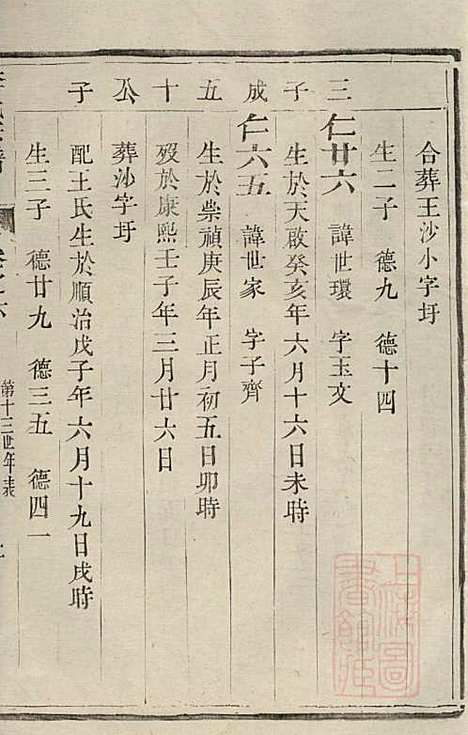 合葬王沙小字圩
生二子　德九　德十四
三
仁廿六　諱世環　字玉文
子
生於天啟癸亥年六月十六日未時
成
仁六五　諱世家　字子齊
五
生於崇禎庚辰年正月初五日卯時
十
歿於康熙壬子年三月廿六日
公
葬沙字圩
子
配王氏生於順治戊子年六月十九日戌時
生三子　德廿九　德三五　德四一
第十三世年表
上海圖書館藏